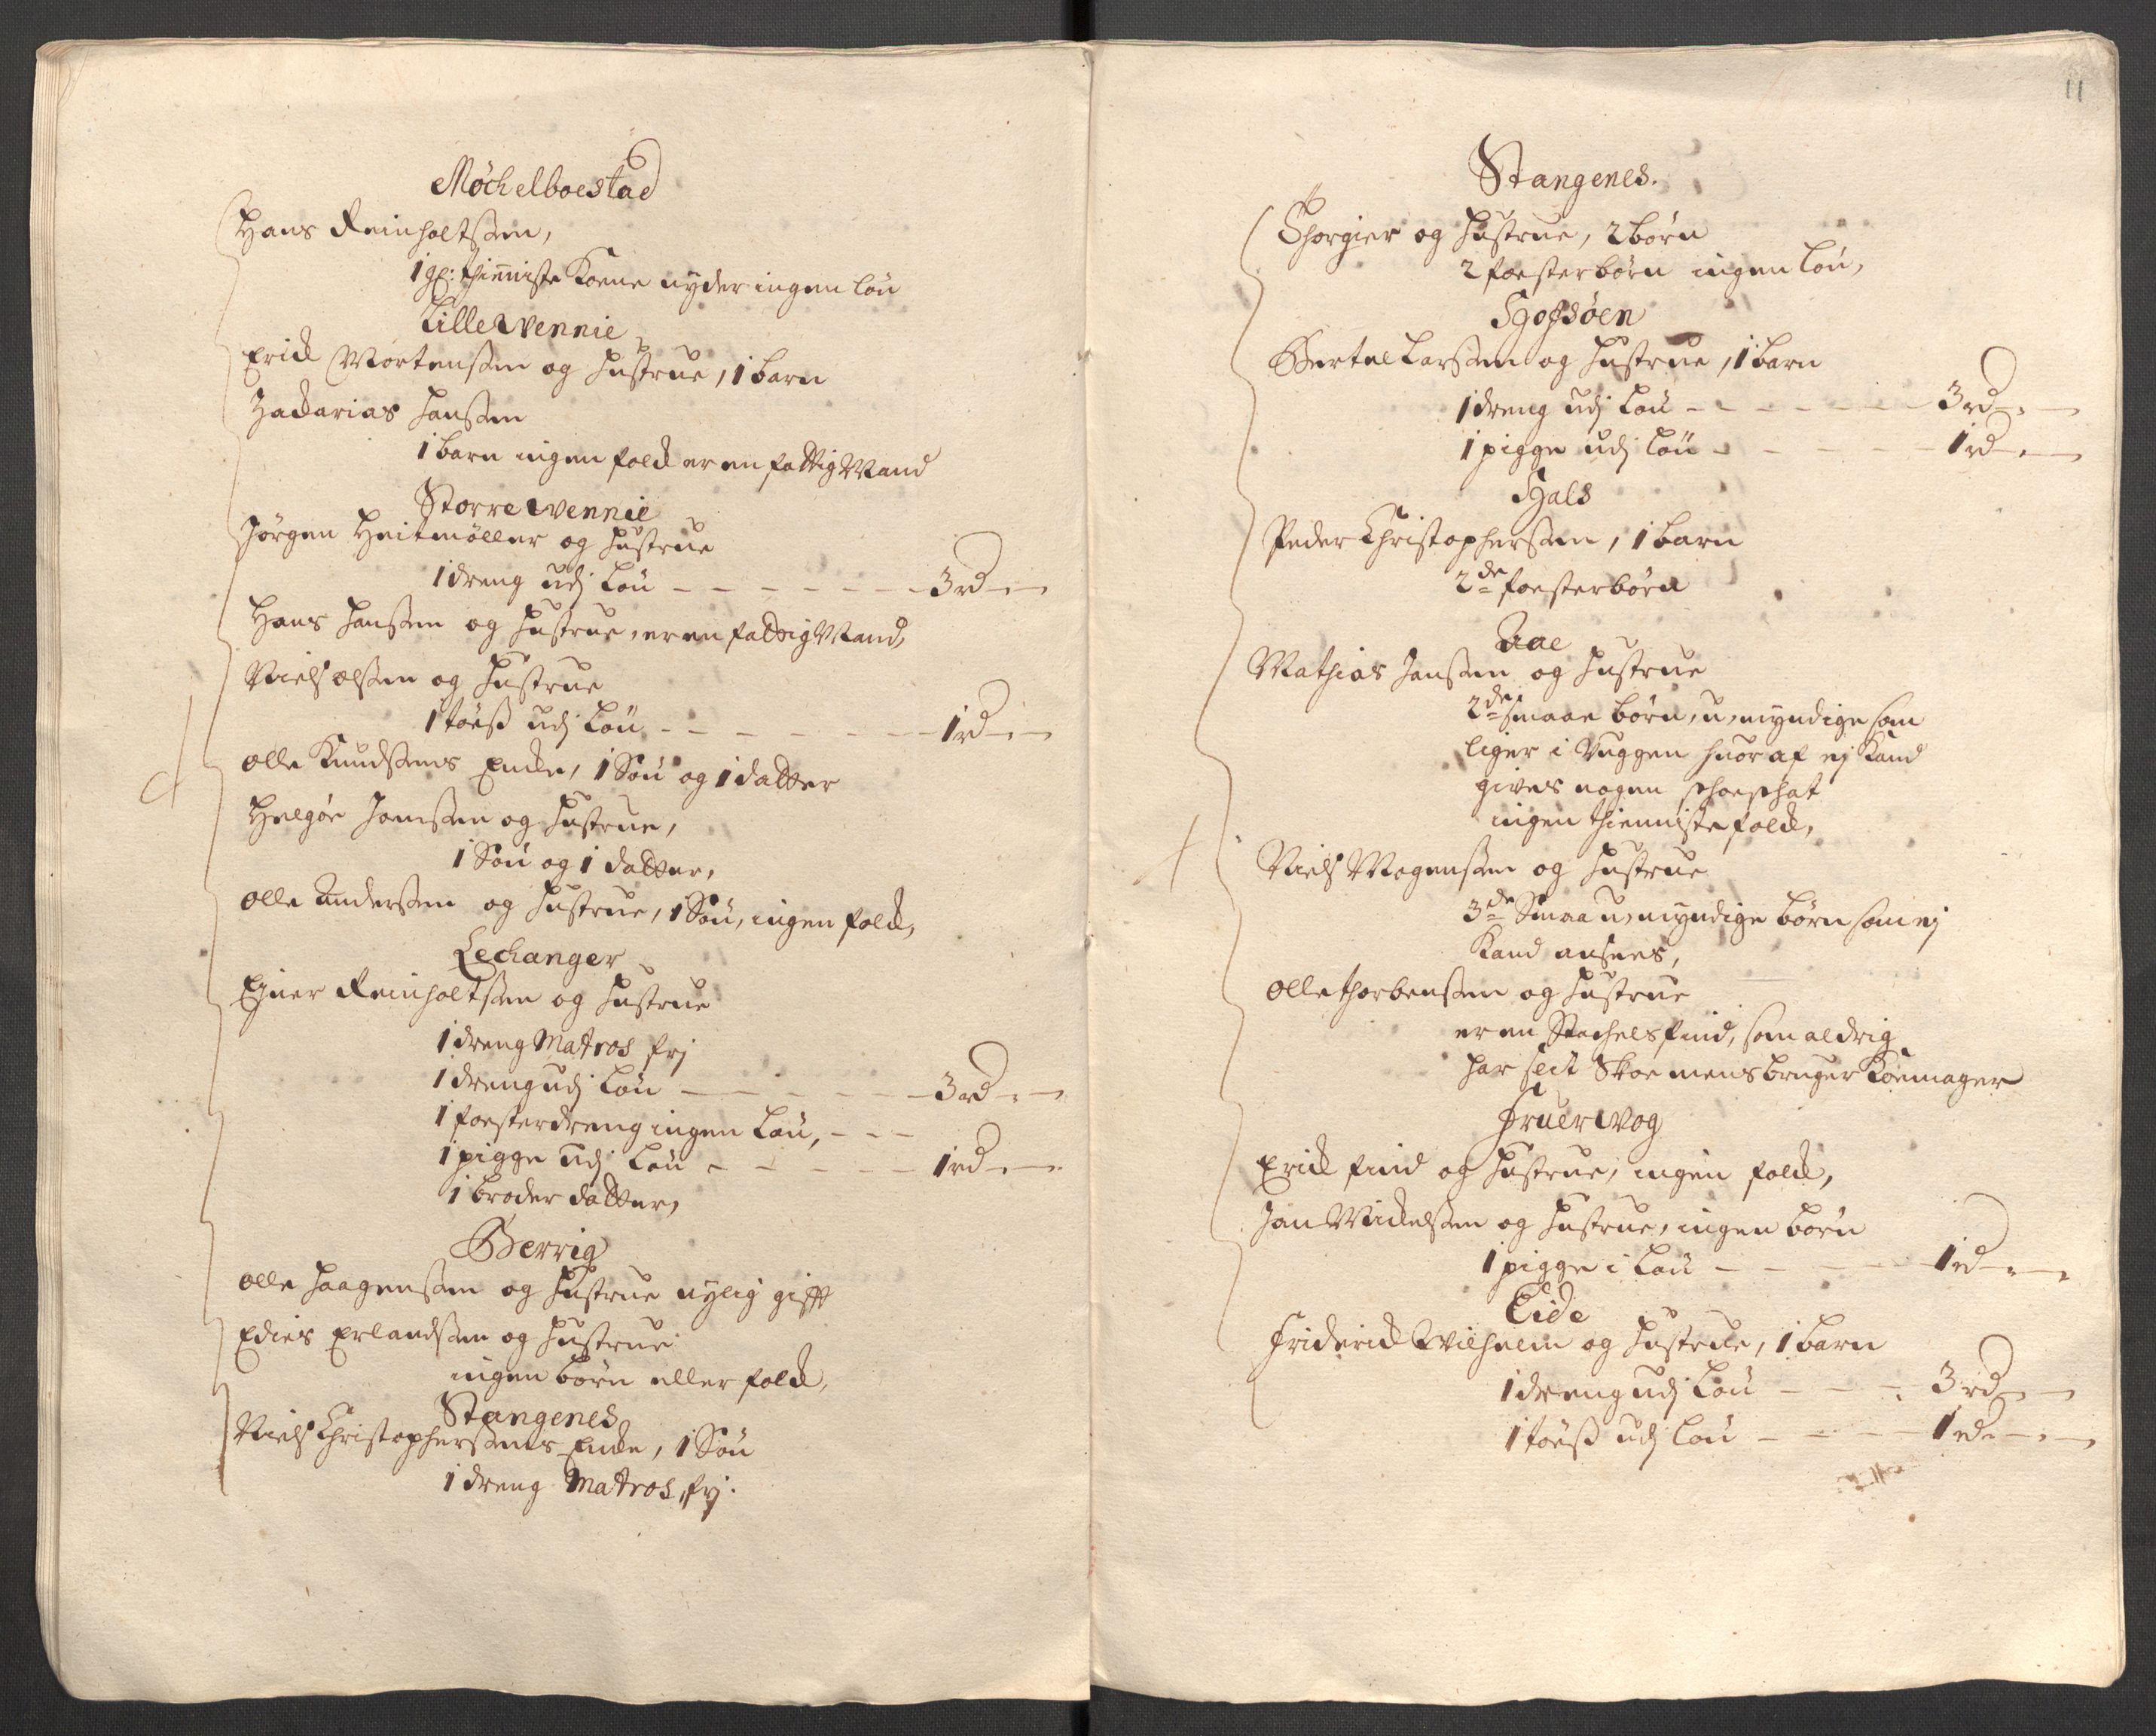 Møchelboestad
Hans Reinholtsen,
1 gl: thieniste Koene nyder ingen löu
Lillewennie
Erich Mortensen og Hustrue, 1 barn
Zacharias Hansen
1 barn ingen folch er en fattig Mand
Storrewennie
Jörgen Heitmöller og Hustrue
1 dreng udj Löu - - - - - - - 3 rd - -
Hans Hansen og Hustrue, er en fattig Mand,
Niels olsen og Hustrue
1 töeß udj Löu - - - - - - - 1 rd - -
olle Knudsens Encke, 1 Sön og 1 datter
Helgöe Jonsen og Hustrue,
1 Sön og 1 datter,
olle Andersen og Hustrue, 1 Sön, ingen folch,
Lechanger
Ejner Reinholtsen og Hustrue
1 dreng Matros frj
1 dreng udj Löu - - - - - - 3 rd - -
1 foesterdreng ingen Löu, - - -
1 pigge udj Löu - - - - - - 1 rd - -
1 broder datter,
Berrig
olle Haagensen og Hustrue nylig gifft
Edies Erlandsen og Hustrue
ingen börn eller folch,
Stangenes
Niels Christophersens Encke, 1 Sön
1 dreng Matros, frj.
11
Stangenes.
Thorgier og Hustrue, 2 börn
2 foesterbörn ingen löu,
Schogsöen
Bertel Larsen og Hustrue, 1 barn
1 dreng udj Löu - - - - - - 3 rd - -
1 pigge udj löu - - - - - - 1 rd - -
Hals
Peder Christophersen, 1 barn
2de foesterbörn
Aae
Mathias Jansen og Hustrue
2de smaae börn, u-myndige som
liger i Vuggen huor af ej Kand
gives nogen schoeschat
ingen thienniste folch,
Niels Mogensen og Hustrue
3de Smaa u-myndige börn som ej
Kand ansees,
olle thorbensen og Hustrue
er en Stachels find, som aldrig
har slit Skoe mens bruger Koemager
Fruerwog
Erich find og Hustrue, ingen folch,
Jan Michelsen og Hustrue, ingen börn
1 pigge i Löu - - - - - 1 rd - -
Eide
Friderich Wilhelm og Hustrue, 1 barn
1 dreng udj Löu - - - - 3 rd - -
1 töeß udj Löu - - - - 1 rd - -